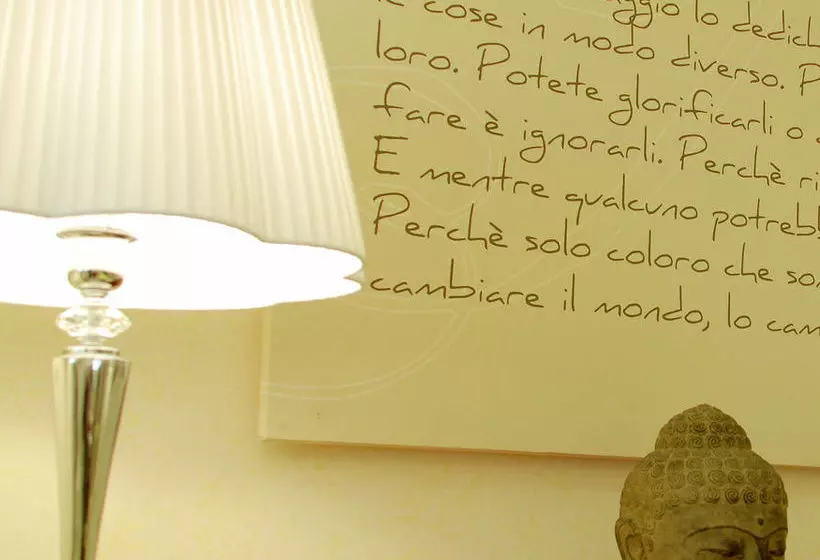 cose in modo diverso.
loro. Potete glorificarli o
fare è ignorarli. Perchè ri
E mentre qualcuno potrebb
Perchè solo coloro che so
cambiare il mondo, lo cam